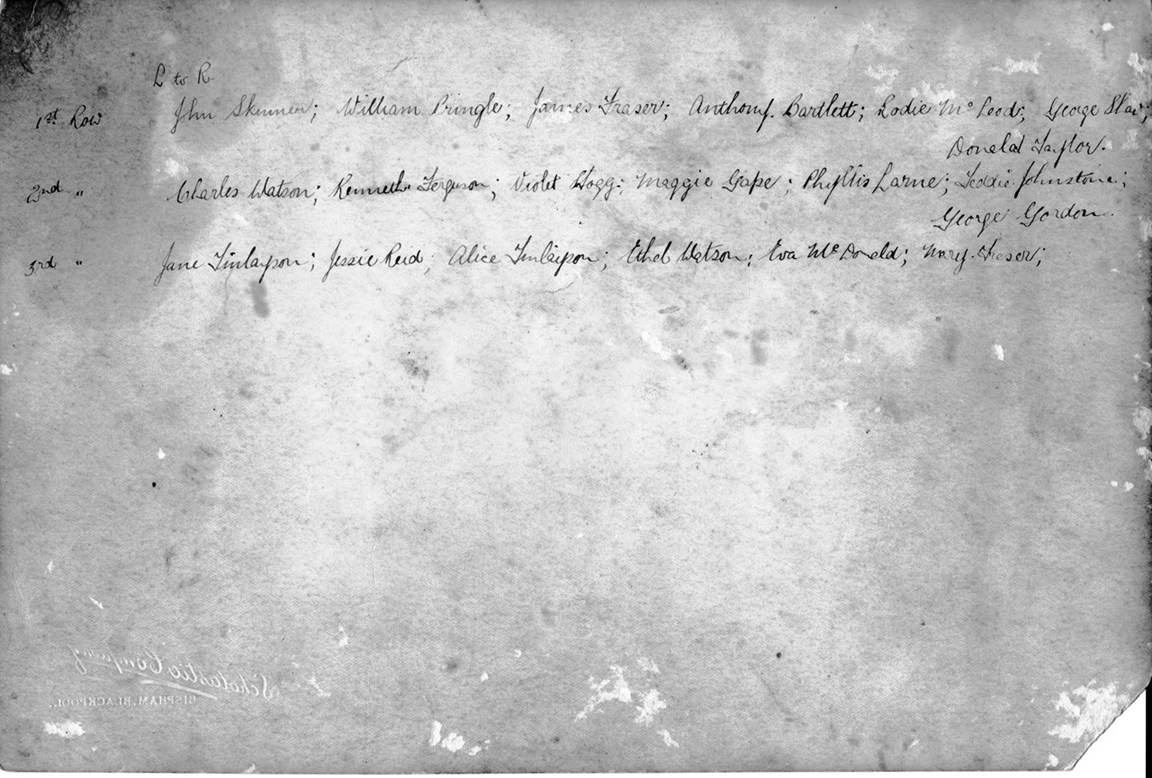 L to R.
1st Row John Skinner; William Pringle; James Fraser; Anthony Bartlett; Rodie McLeod; George
Donald Taylor.
2nd " Charles Watson; Kenneth Ferguson; Violet Hogg; Maggie Gape; Phyllis Larne; Teddie Johnstone;
George Gordon.
3rd " Jane Finlayson; Jessie Reid; Alice Finlayson; Ethel Watson; Eva McDonald; Mary Fraser;
Scholastic Company
BISPHAM, BLACKPOOL.